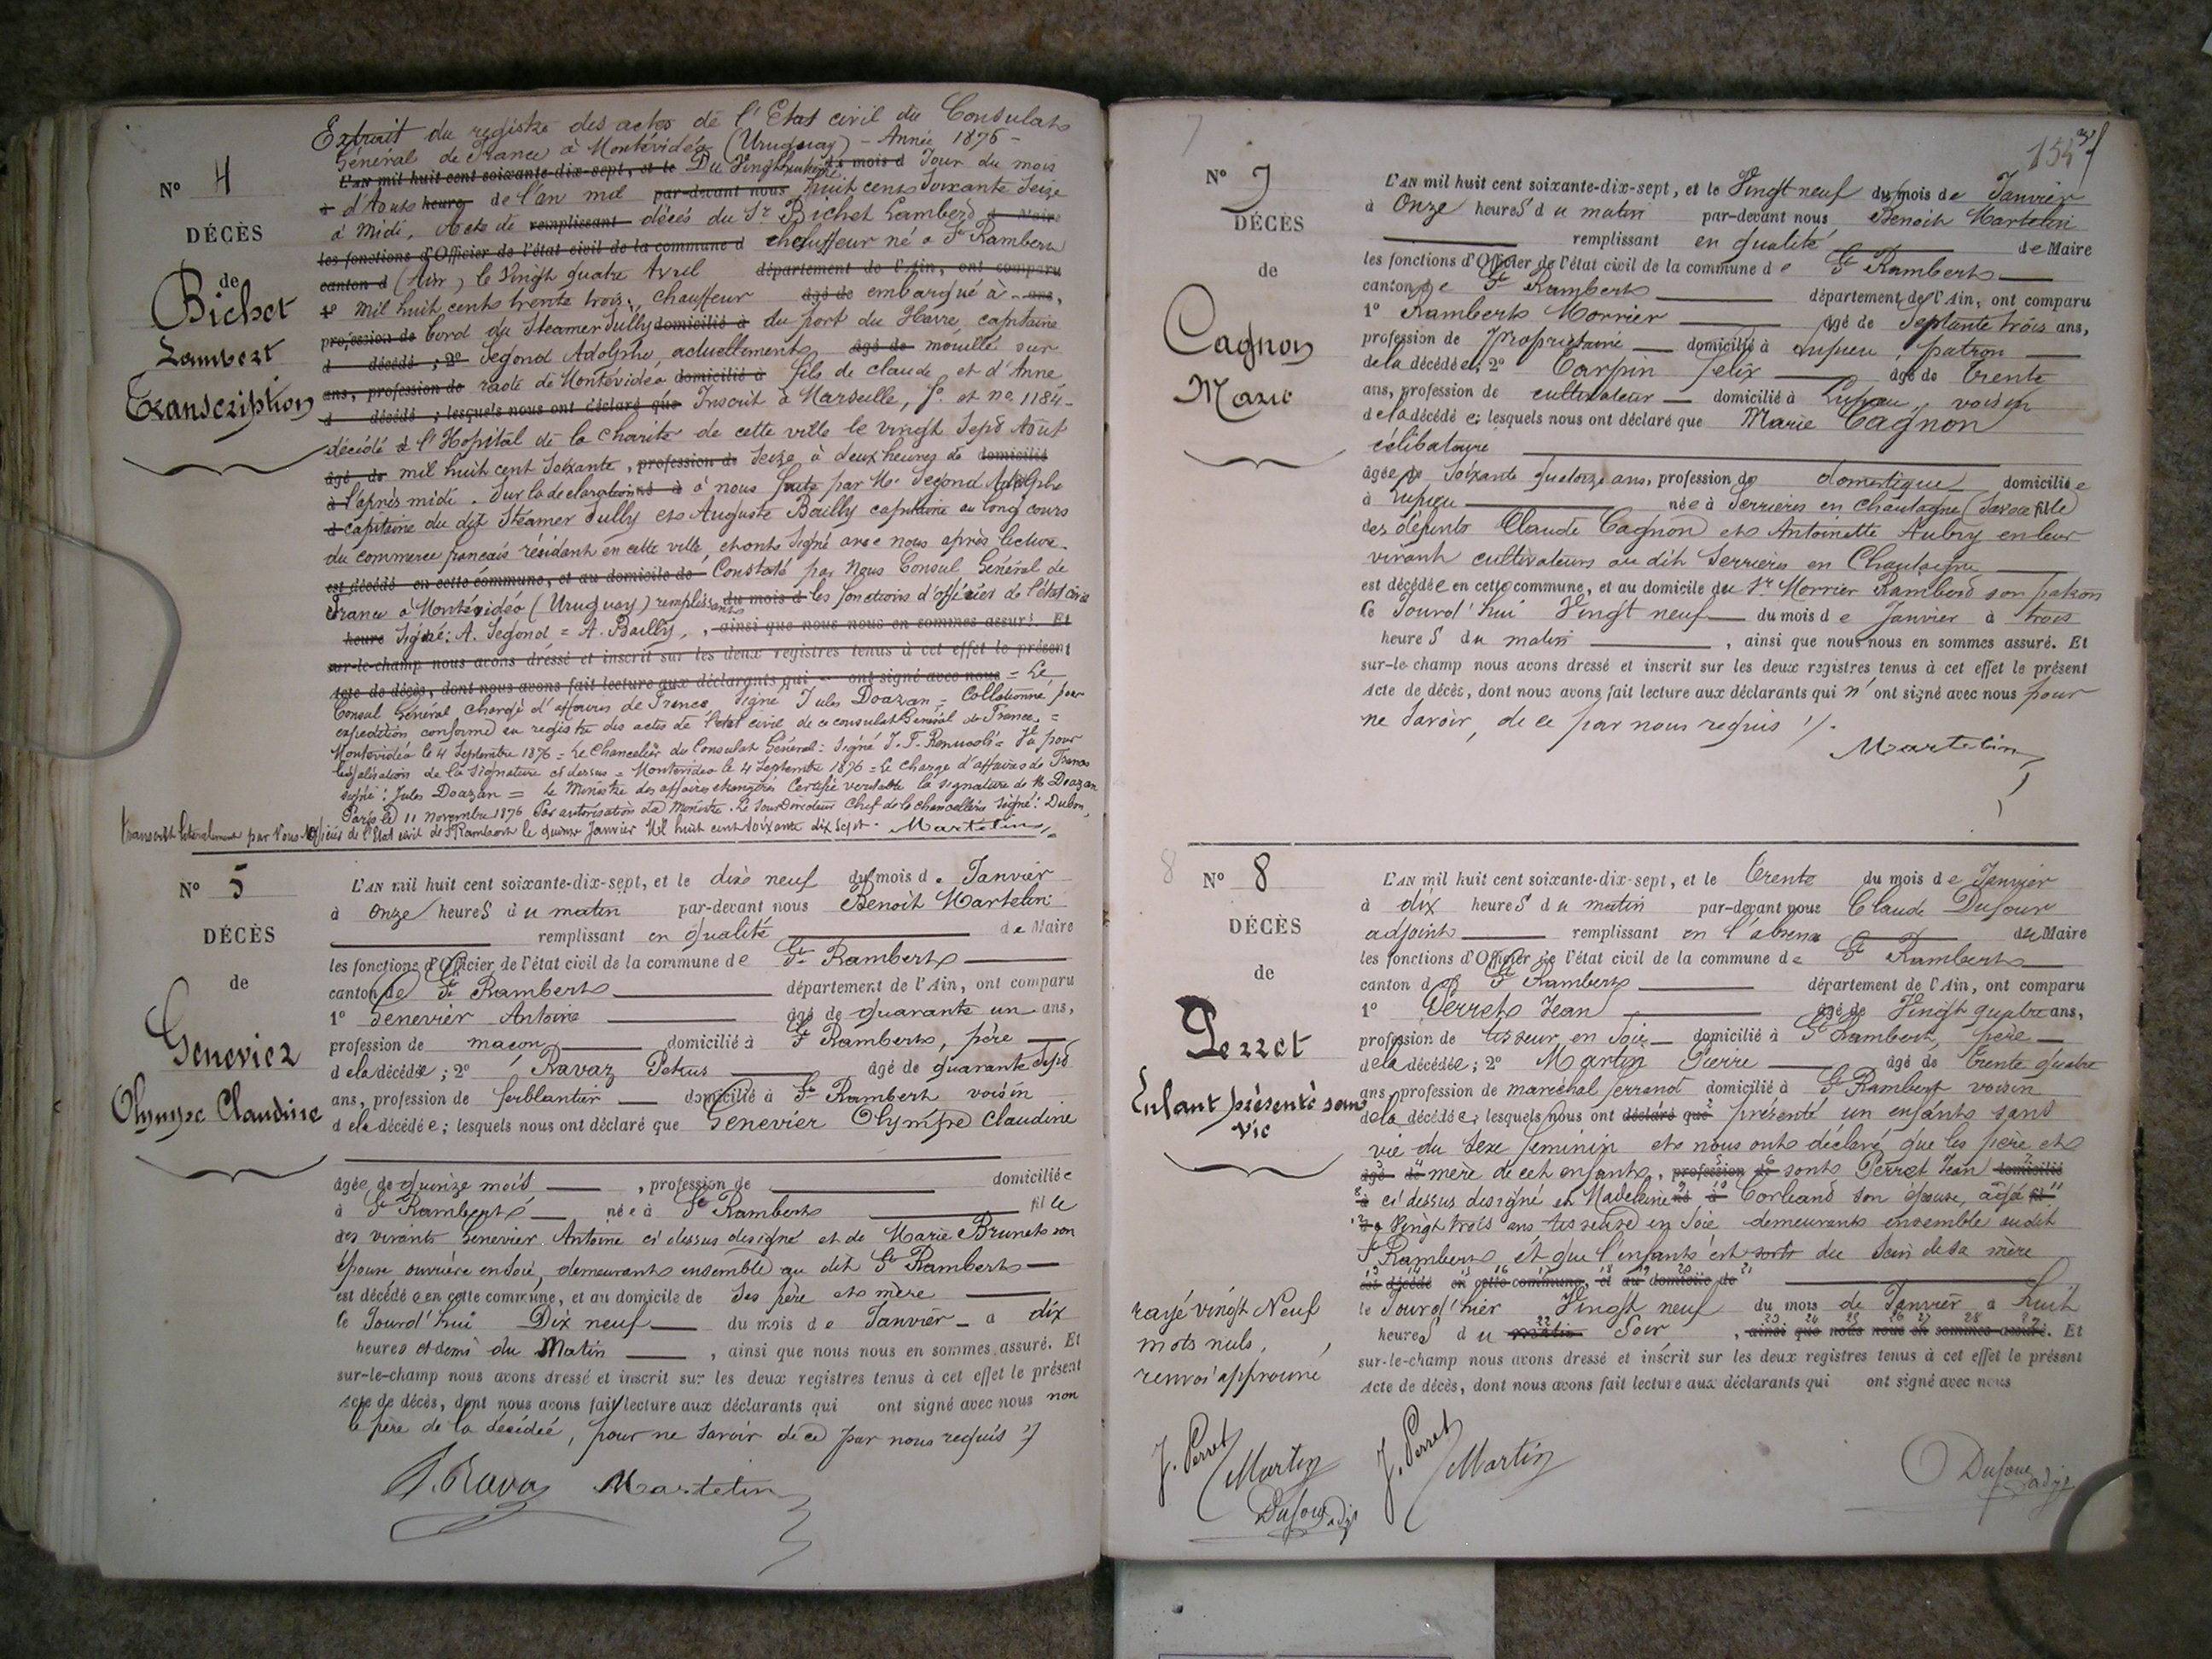 Extrait du registre des actes de l'Etat civil du Consulat
Général de France à Montévidéo (Uruguay) - Année 1876 -
L'AN mil huit cent soixante-dix-sept, et le Du Vingt huitième du mois d Jour du mois
à d'Aout heure de l'an mil par-devant nous huit cent Soixante Seize
à midi, Acte de remplissant décés du Sr Bichet Lambert d Maire
les fonctions d'Officier de l'état civil de la commune d chauffeur né à St Rambert
canton d (Ain) le Vingt quatre Avril département de l'Ain, ont comparu
1° mil huit cent trente trois, chauffeur âgé de embarqué à ans,
profession de bord du Steamer Sully domicilié à du port du Havre, capitaine
d décédé ; 2° Segond Adolphe, actuellement âgé de mouillé sur
ans, profession de rade de Montévidéo domicilié à fils de claude et d'Anne
d décédé ; lesquels nous ont déclaré que Inscrit à Marseille, f° et no 1184 -
décédé à l'Hopital de la charité de cette ville le vingt Sept Aout
âgé de mil huit cent Soixante, profession de Seize à deux heures de domicilié
à l'après midi. Sur la declaration né à à nous faite par Mr Segond Adolphe
d capitaine du dit Steamer Sully et Auguste Bailly capitaine au long cours
du commerce français résidant en cette ville, et ont signé avec nous après lecture.
est décédé en cette commune, et au domicile de Constaté par Nous Consul Général de
France à Montévidéo (Uruguay) remplissant du mois d les fonctions d'officier de l'état civil
heure Signé : A. Segond = A. Bailly, , ainsi que nous nous en sommes assuré. Et
sur-le-champ nous avons dressé et inscrit sur les deux registres tenus à cet effet le présent
acte de décès, dont nous avons fait lecture aux déclarants qui ont signé avec nous = Le
Consul Général chargé d'affaires de France Signé Jules Doazan = Collationné pour
expedition conforme au registre des actes de l'etat civil de ce consulat Général de France =
Montevideo le 4 Septembre 1876 = Le Chancelier du Consulat Général : signé J. F. = Vu pour
legalisation de la signature ci dessus = Montevideo le 4 Septembre 1876 = Le Chargé d'affaires de France
signé : Jules Doazan = Le Ministre des affaires etrangères Certifie veritable la signature de M Doazan
Paris le 11 novembre 1876 Par autorisation du Ministre. Le Sous Directeur Chef de la chancellerie signé : Dubois
transcrit litteralement par Nous Officier de l'Etat civil de St Rambert le quinze Janvier Mil huit cent soixante dix sept. Martelin
N° 4
DÉCÈS
de
Bichet
Lambert
Transcription
N° 5
DÉCÈS
de
Genevier
Olympe Claudine
L'AN mil huit cent soixante-dix-sept, et le dixe neuf du mois de Janvier
à Onze heures du matin par-devant nous Benoit Martelin
remplissant en qualité de Maire
les fonctions d'Officier de l'état civil de la commune de St Rambert
canton de St Rambert département de l'Ain, ont comparu
1° Genevier Antoine âgé de quarante un ans,
profession de maçon domicilié à St Rambert, père
de la décédée ; 2° Ravaz Petrus âgé de quarante sept
ans, profession de ferblantier domicilié à St Rambert voisin
de la décédée ; lesquels nous ont déclaré que Genevier Olympe Claudine
âgée de quinze mois , profession de domiciliée
à St Rambert née à St Rambert fille
des vivants Genevier Antoine ci dessus designé et de Marie Brunet son
épouse ouvrière en soie, demeurants ensemble au dit St Rambert
est décédée en cette commune, et au domicile de Ses père et mère
le Jourd'hui Dix neuf du mois de Janvier à dix
heures et demi du Matin , ainsi que nous nous en sommes assuré. Et
sur-le-champ nous avons dressé et inscrit sur les deux registres tenus à cet effet le présent
acte de décès, dont nous avons fait lecture aux déclarants qui ont signé avec nous non
le père de la décédée, pour ne savoir de ce par nous requis
P. Ravaz Martelin
7
154
N° 7
DÉCÈS
de
Cagnon
Marie
L'AN mil huit cent soixante-dix-sept, et le Vingt neuf du mois de Janvier
à Onze heures du matin par-devant nous Benoit Martelin
remplissant en qualité de Maire
les fonctions d'Officier de l'état civil de la commune de St Rambert
canton de St Rambert département de l'Ain, ont comparu
1° Rambert Morrier âgé de Septante trois ans,
profession de Proprietaire domicilié à Lupieu, patron
de la décédée ; 2° Carpin Felix âgé de trente
ans, profession de cultivateur domicilié à Lupieu, voisin
de la décédée ; lesquels nous ont déclaré que Marie Cagnon
célibataire
âgée de Soixante quatorze ans, profession de domestique domiciliée
à Lupieu née à Serrières en Chautagne (Savoie fille)
des défunts Claude Cagnon et Antoinette Aubry en leur
vivant cultivateurs au dit Serrières en Chautagne
est décédée en cette commune, et au domicile du Sr Morrier Rambert son patron
le Jourd'hui Vingt neuf du mois de Janvier à trois
heures du matin , ainsi que nous nous en sommes assuré. Et
sur-le-champ nous avons dressé et inscrit sur les deux registres tenus à cet effet le présent
acte de décès, dont nous avons fait lecture aux déclarants qui n'ont signé avec nous pour
ne savoir, de ce par nous requis ./.
Martelin
8
N° 8
DÉCÈS
de
Perret
Enfant présenté sans
vie
L'AN mil huit cent soixante-dix-sept, et le trente du mois de Janvier
à dix heures du matin par-devant nous Claude Dufour
adjoint remplissant en l'absence du Maire
les fonctions d'Officier de l'état civil de la commune de St Rambert
canton de St Rambert département de l'Ain, ont comparu
1° Perret Jean âgé de Vingt quatre ans,
profession de tisseur en soie domicilié à St Rambert, père
de la décédée ; 2° Martin Pierre âgé de trente quatre
ans, profession de marechal ferrand domicilié à St Rambert voisin
de la décédée ; lesquels nous ont déclaré que présenté un enfant sans
vie du sexe feminin et nous ont déclaré que les père et
âgé de mère de cet enfant, profession de sont Perret Jean domicilié
à ci dessus designé et Madeleine né à Corleand son épouse, âgé fil
de Vingt trois ans tisseuse en soie demeurants ensemble au dit
St Rambert et que l'enfant est sorti du sein de sa mère
est décédé en cette commune, et au domicile de
le Jourd'hier Vingt neuf du mois de Janvier à huit
heures du matin Soir , ainsi que nous nous en sommes assuré. Et
sur-le-champ nous avons dressé et inscrit sur les deux registres tenus à cet effet le présent
acte de décès, dont nous avons fait lecture aux déclarants qui ont signé avec nous
rayé vingt Neuf
mots nuls,
renvoi approuvé
J. Perret Martin
Dufour adjt
J. Perret Martin
Dufour adjt